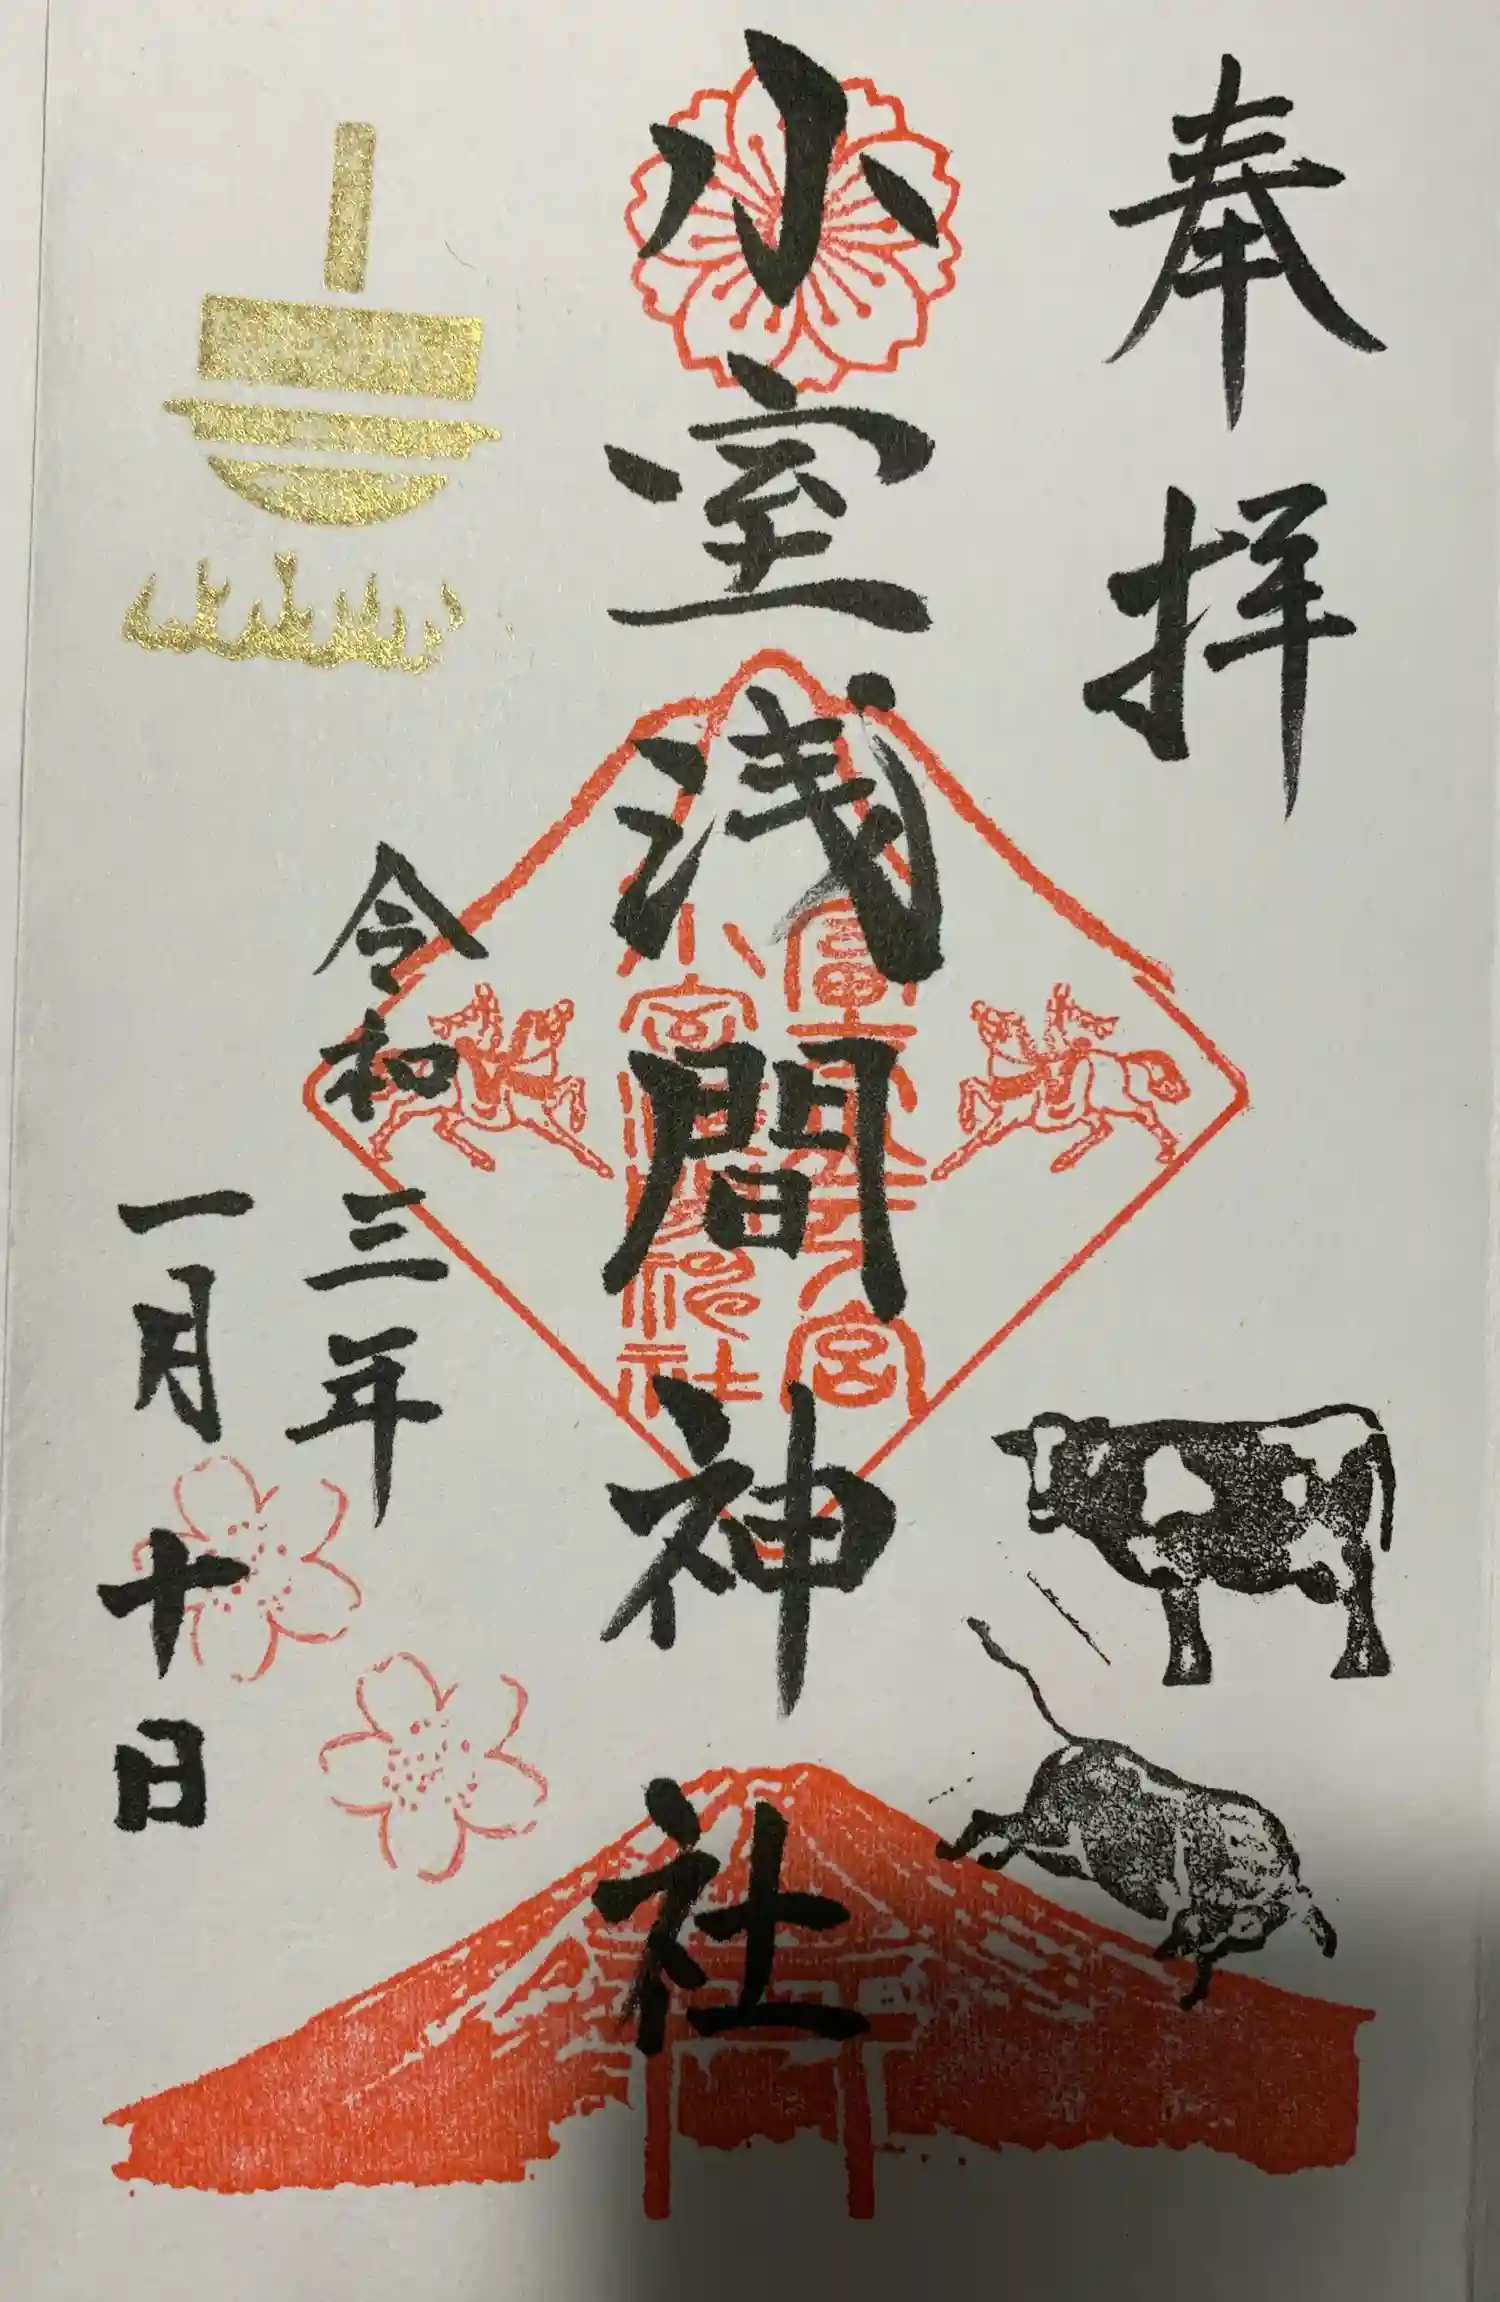 奉拝
小室浅間神社
令和三年
一月十日